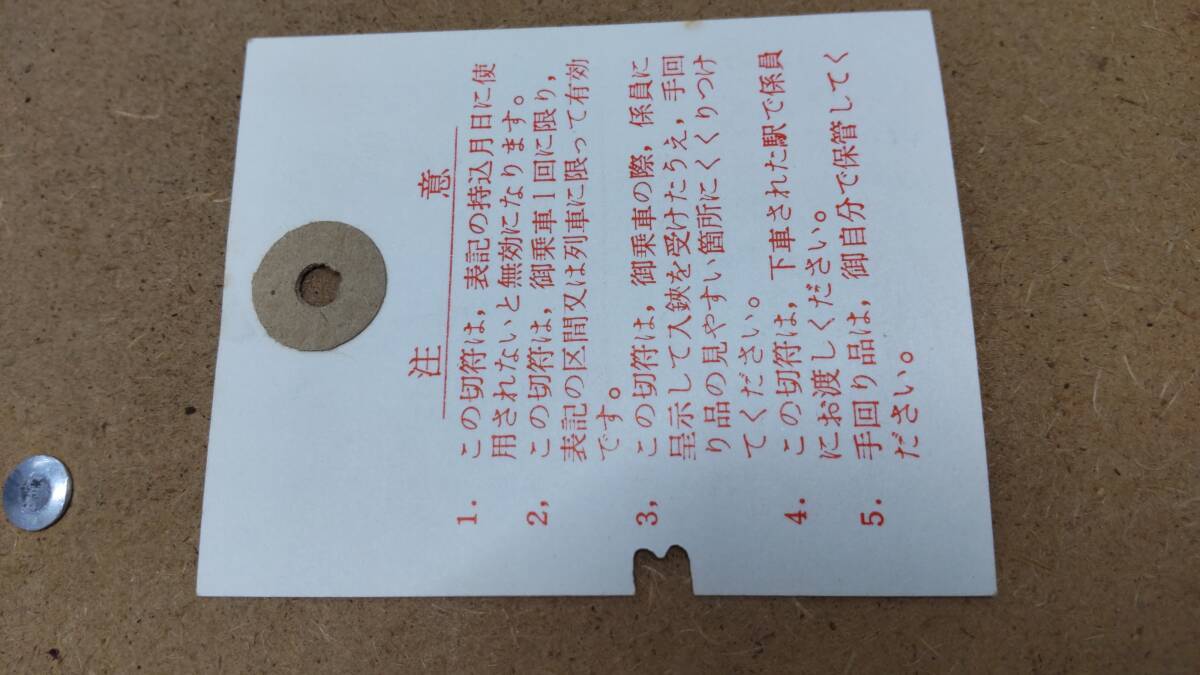 注意
1. この切符は，表記の持込月日に使
用されないと無効になります。
2, この切符は，御乗車1回に限り，
表記の区間又は列車に限って有効
です。
3, この切符は，御乗車の際，係員に
呈示して入鋏を受けたうえ，手回
り品の見やすい箇所にくくりつけ
てください。
4. この切符は，下車された駅で係員
にお渡しください。
5. 手回り品は，御自分で保管してく
ださい。